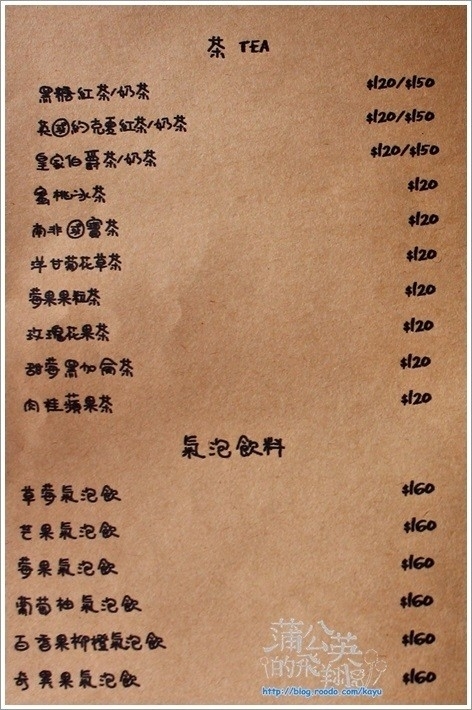 茶 TEA
黑糖紅茶/奶茶 $120/$150
英國約克夏紅茶/奶茶 $120/$150
皇家伯爵茶/奶茶 $120/$150
蜜桃冰茶 $120
南非國寶茶 $120
洋甘菊花草茶 $120
莓果果粒茶 $120
玫瑰花果茶 $120
甜莓黑加侖茶 $120
肉桂蘋果茶 $120
氣泡飲料
草莓氣泡飲 $160
芒果氣泡飲 $160
莓果氣泡飲 $160
葡萄柚氣泡飲 $160
百香果柳橙氣泡飲 $160
奇異果氣泡飲 $160
蒲公英
的飛翔
http://blog.roodo.com/kayu